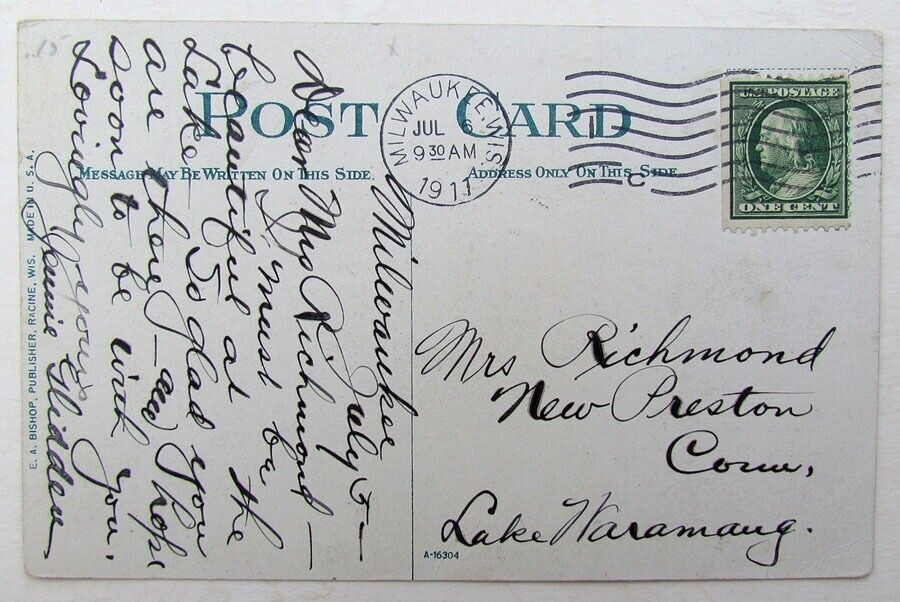 .15
POST CARD
MESSAGE MAY BE WRITTEN ON THIS SIDE.
ADDRESS ONLY ON THIS SIDE
MILWAUKEE, WIS.
JUL 6
9 30 AM
1911
1
C
U.S. POSTAGE
ONE CENT
Milwaukee
July 6—
Dear Mrs Richmond—
must be
beautiful at the
Lake— So glad you
are there— and I hope
soon to be with you.
Lovingly yours
Glidden
Mrs Richmond
New Preston
Conn,
Lake Waramaug.
E. A. BISHOP, PUBLISHER, RACINE, WIS. MADE IN U. S. A.
A-16304